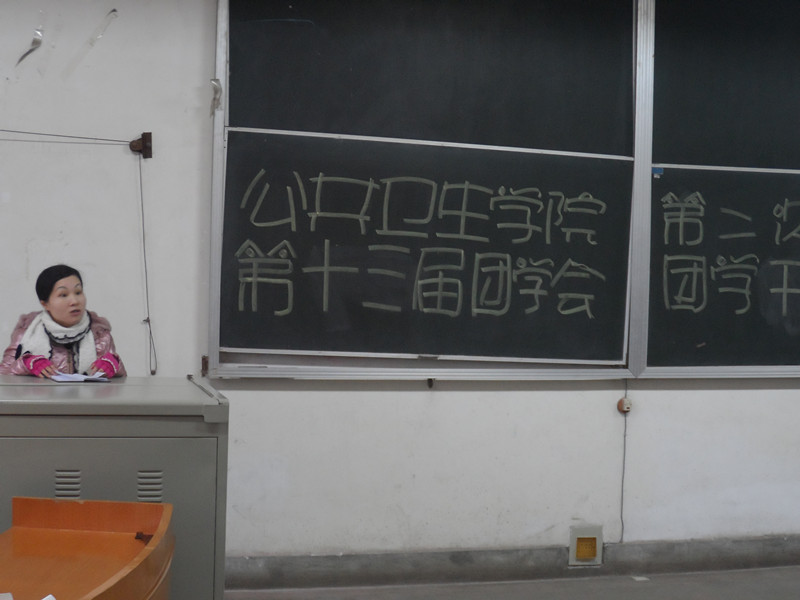 公共卫生学院
第十三届团学会
第二次
团学干